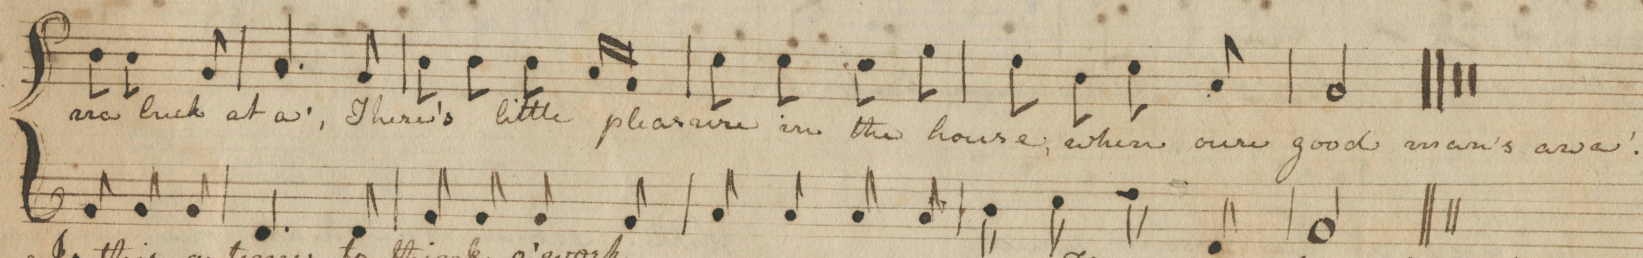 na luck at a', There's little pleasure in the house, when oure good man's awa'.
Is this a time to think o' work